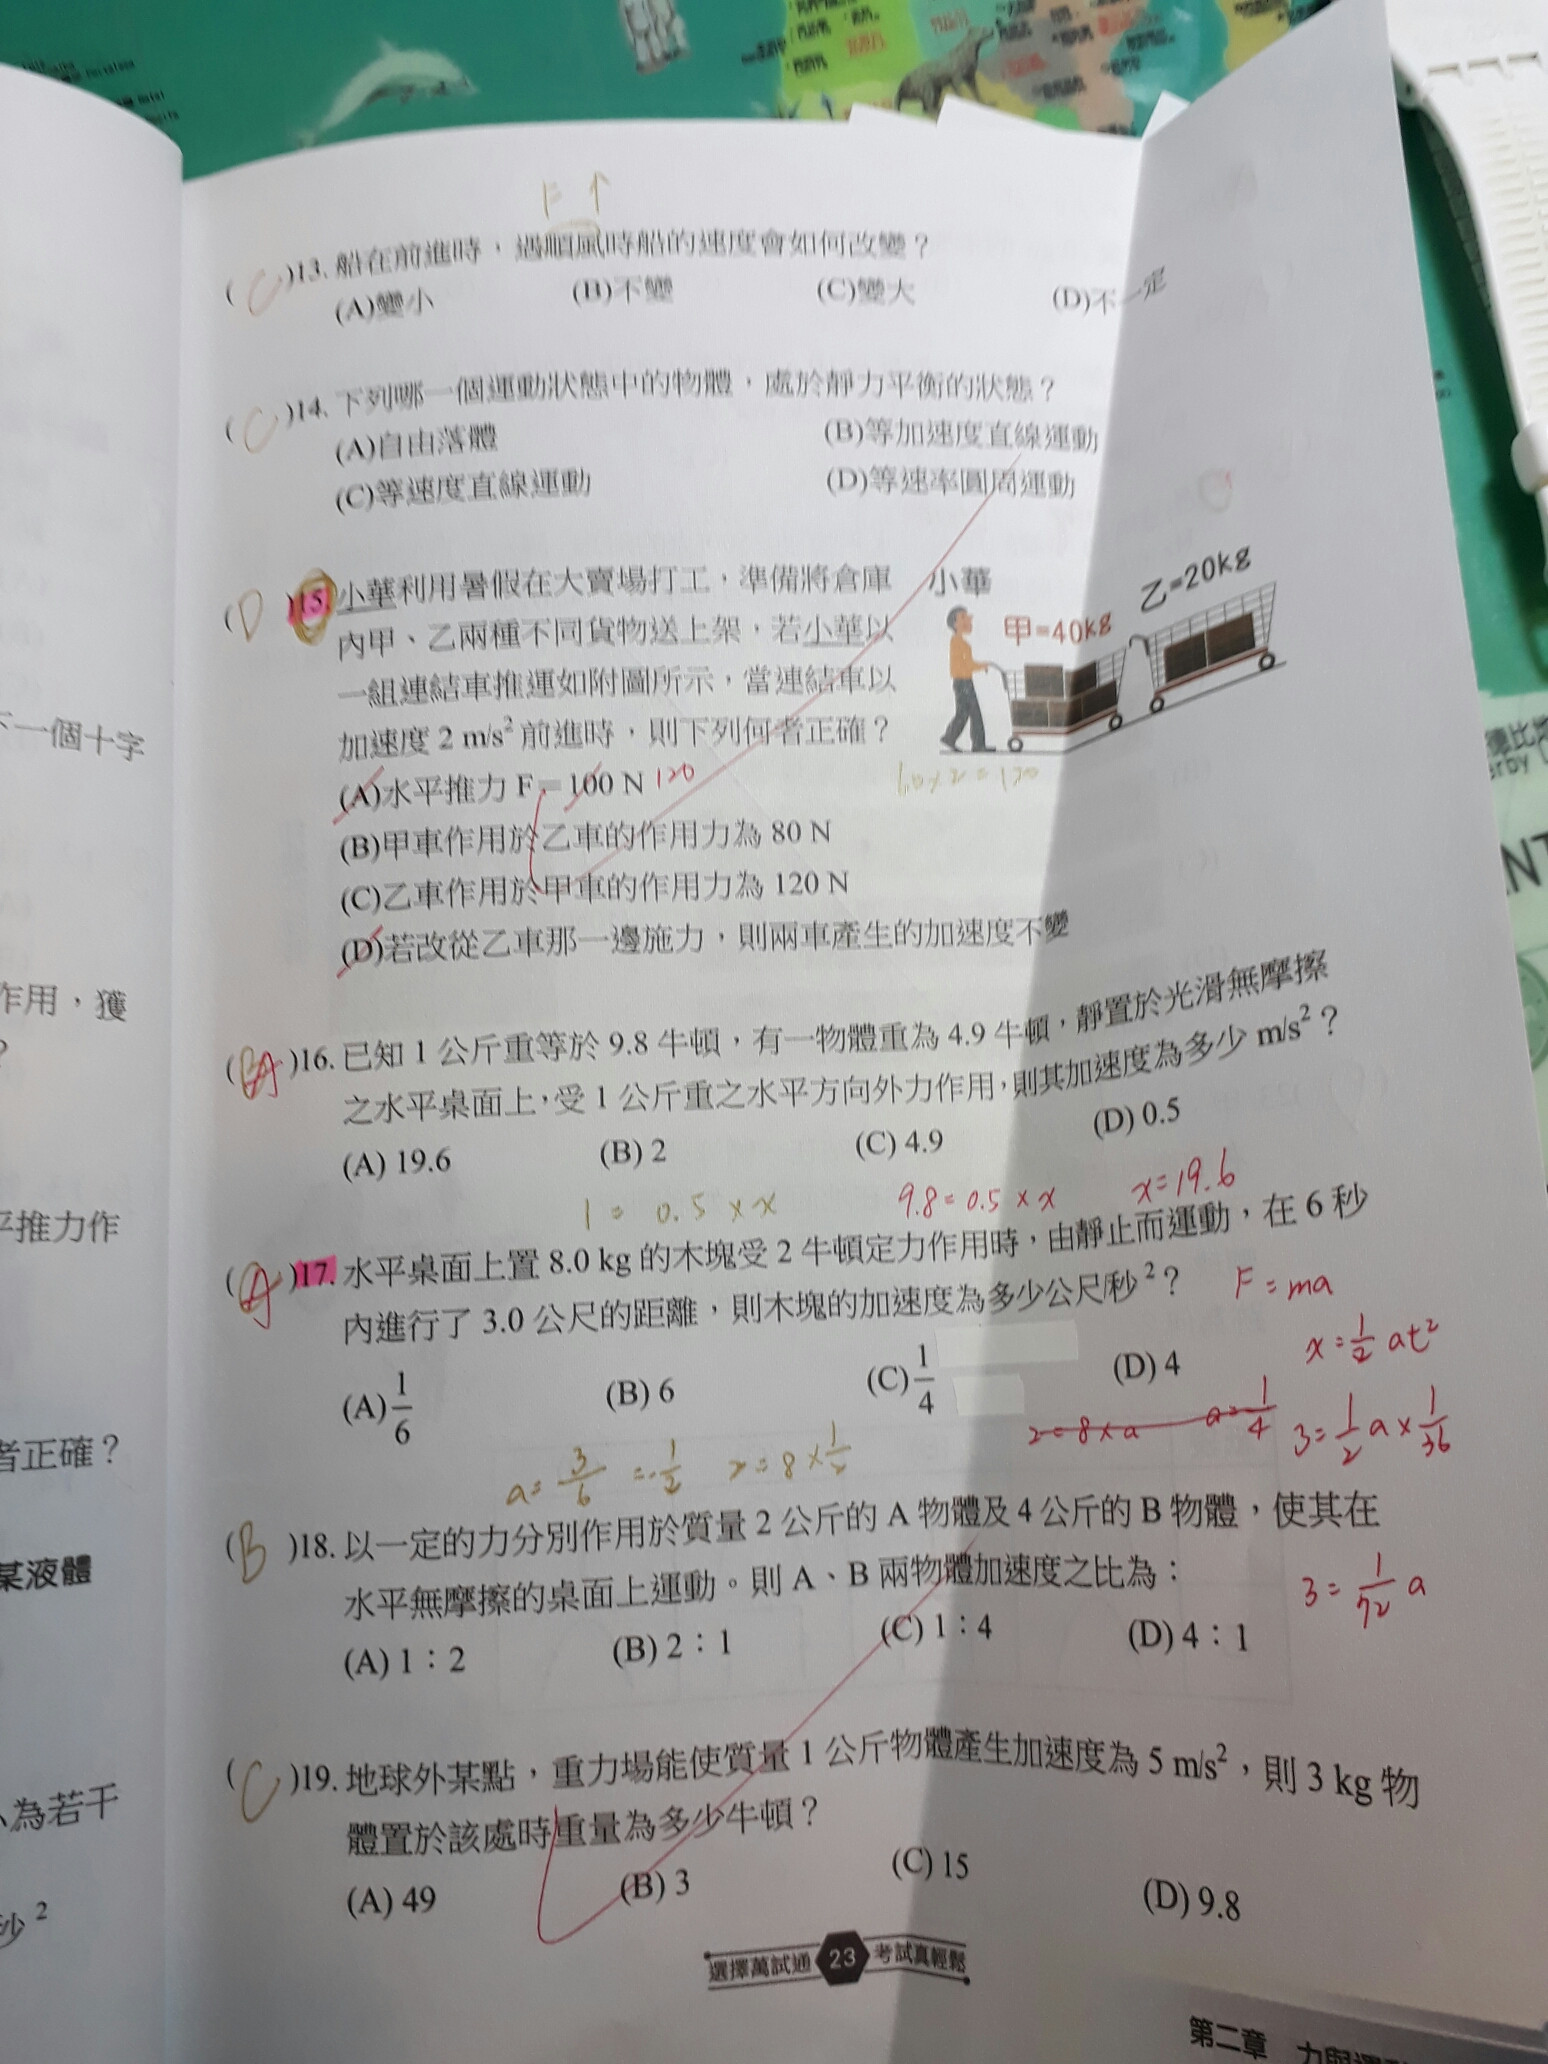 F↑
(C)13. 船在前進時，遇順風時船的速度會如何改變？
(A)變小 (B)不變 (C)變大 (D)不一定
(C)14. 下列哪一個運動狀態中的物體，處於靜力平衡的狀態？
(A)自由落體 (B)等加速度直線運動
(C)等速度直線運動 (D)等速率圓周運動
(D)15. 小華利用暑假在大賣場打工，準備將倉庫
內甲、乙兩種不同貨物送上架，若小華以
一組連結車推運如附圖所示，當連結車以
加速度 2 m/s² 前進時，則下列何者正確？
小華
甲=40kg
乙=20kg
60×2=120
(A)水平推力 F = 100 N 120
(B)甲車作用於乙車的作用力為 80 N
(C)乙車作用於甲車的作用力為 120 N
(D)若改從乙車那一邊施力，則兩車產生的加速度不變
(A)16. 已知 1 公斤重等於 9.8 牛頓，有一物體重為 4.9 牛頓，靜置於光滑無摩擦
之水平桌面上，受 1 公斤重之水平方向外力作用，則其加速度為多少 m/s²？
(A) 19.6 (B) 2 (C) 4.9 (D) 0.5
1 = 0.5 × x 9.8 = 0.5 × x x = 19.6
(A)17. 水平桌面上置 8.0 kg 的木塊受 2 牛頓定力作用時，由靜止而運動，在 6 秒
內進行了 3.0 公尺的距離，則木塊的加速度為多少公尺/秒²？ F = ma
(A) 1/6 (B) 6 (C) 1/4 (D) 4
x = 1/2 at²
2 = 8 × a a = 1/4 3 = 1/2 a × 1/36
a = 3/6 = 1/2 2 = 8 × 1/2
3 = 1/72 a
(B)18. 以一定的力分別作用於質量 2 公斤的 A 物體及 4 公斤的 B 物體，使其在
水平無摩擦的桌面上運動。則 A、B 兩物體加速度之比為：
(A) 1：2 (B) 2：1 (C) 1：4 (D) 4：1
(C)19. 地球外某點，重力場能使質量 1 公斤物體產生加速度為 5 m/s²，則 3 kg 物
體置於該處時重量為多少牛頓？
(A) 49 (B) 3 (C) 15 (D) 9.8
選擇萬試通 23 考試真輕鬆
第二章
一個十字
作用，獲
推力作
者正確？
某液體
為若干
秒²